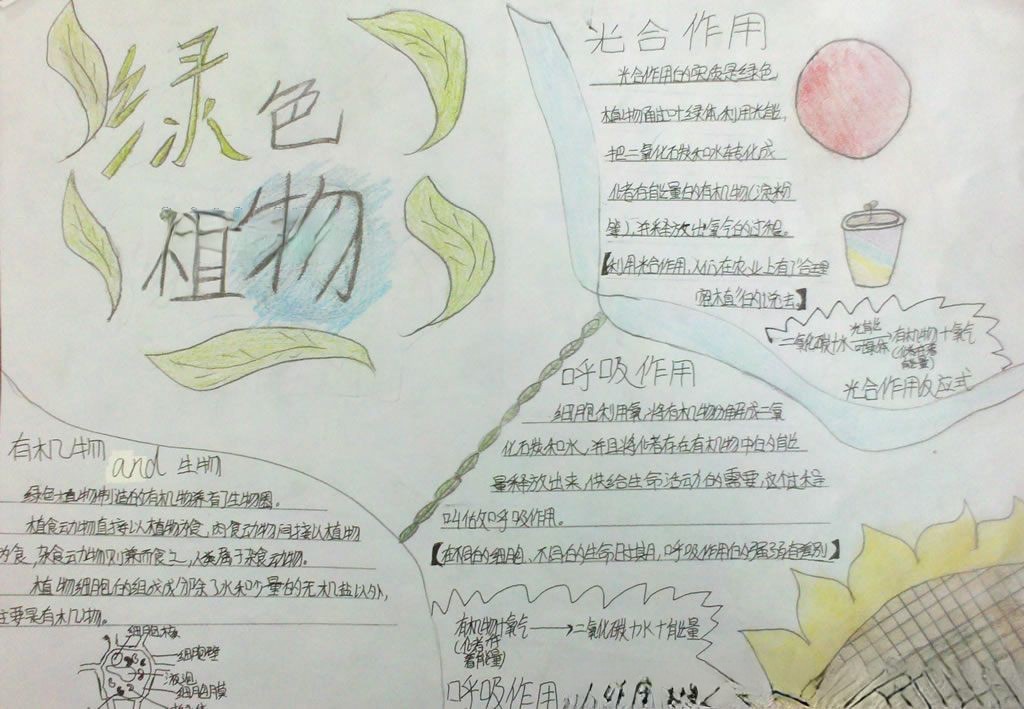 绿色
植物
光合作用
光合作用的实质是绿色
植物通过叶绿体,利用光能,
把二氧化碳和水转化成
储存有能量的有机物(淀粉
等),并释放出氧气的过程。
【利用光合作用,人们在农业上有了合理
密植的说法】
二氧化碳+水 光能 叶绿体 有机物+氧气
(储存着
能量)
光合作用反应式
呼吸作用
细胞利用氧,将有机物分解成二氧
化碳和水,并且将储存在有机物中的能
量释放出来,供给生命活动的需要,这个过程
叫做呼吸作用。
【在不同的细胞、不同的生命时期,呼吸作用的强弱有差别】
有机物+氧气→二氧化碳+水+能量
(储存
着能量)
呼吸作用
有机物 and 生物
绿色植物制造的有机物养育了生物圈。
植食动物直接以植物为食,肉食动物间接以植物
为食,杂食动物则兼而食之,人类属于杂食动物。
植物细胞的组成成分除了水和少量的无机盐以外,
主要是有机物。
细胞核
细胞壁
液泡
细胞膜